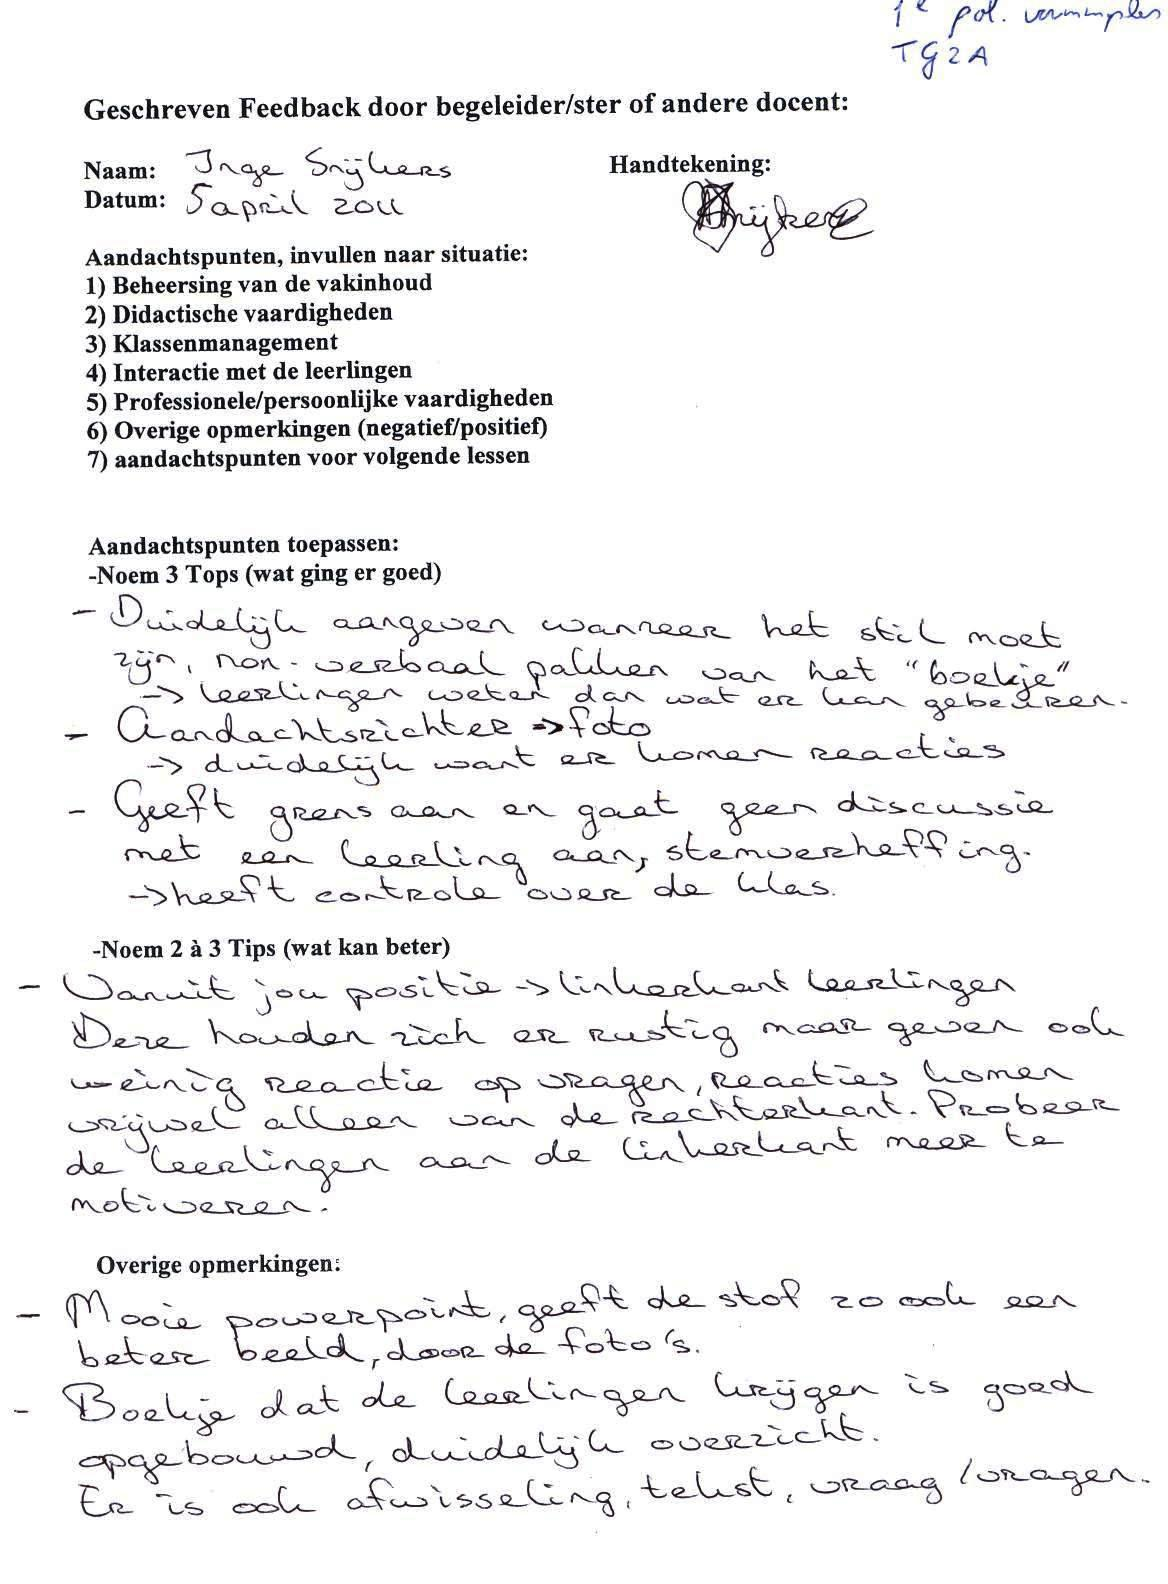 1e pol.
TG2A
Geschreven Feedback door begeleider/ster of andere docent:
Naam: Inge Snijkers
Handtekening:
Datum: 5 april 2011
Snijkers
Aandachtspunten, invullen naar situatie:
1) Beheersing van de vakinhoud
2) Didactische vaardigheden
3) Klassenmanagement
4) Interactie met de leerlingen
5) Professionele/persoonlijke vaardigheden
6) Overige opmerkingen (negatief/positief)
7) aandachtspunten voor volgende lessen
Aandachtspunten toepassen:
-Noem 3 Tops (wat ging er goed)
- Duidelijk aangeven wanneer het stil moet
zijn, non-verbaal pakken van het "boekje"
-> leerlingen weten dan wat er kan gebeuren.
- Aandachtsrichter -> foto
-> duidelijk want er komen reacties
- Geeft grens aan en gaat geen discussie
met een leerling aan, stemverheffing.
-> heeft controle over de klas.
-Noem 2 à 3 Tips (wat kan beter)
- Vanuit jou positie -> linkerkant leerlingen
Deze houden zich er rustig maar geven ook
weinig reactie op vragen, reacties komen
vrijwel alleen van de rechterkant. Probeer
de leerlingen aan de linkerkant meer te
motiveren.
Overige opmerkingen:
- Mooie powerpoint, geeft de stof zo ook een
beter beeld, door de foto's.
- Boekje dat de leerlingen krijgen is goed
opgebouwd, duidelijk overzicht.
Er is ook afwisseling, tekst, vraag/vragen.